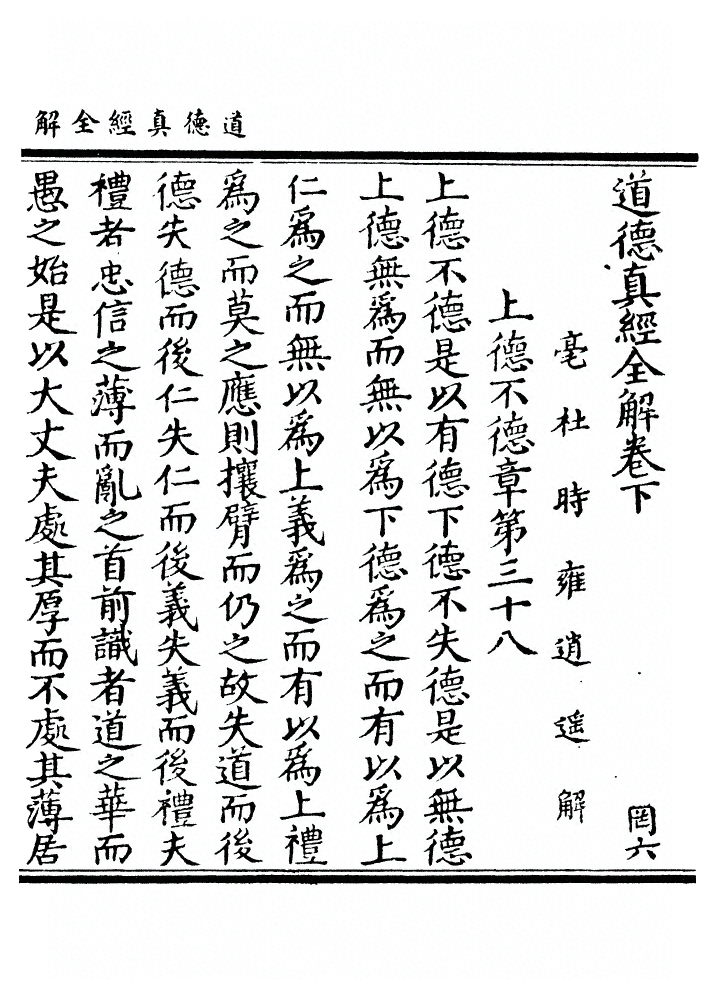 道德真經全解
道德真經全解卷下
罔六
亳杜時雍逍遥解
上德不德章第三十八
上德不德是以有德下德不失德是以無德
上德無爲而無以爲下德爲之而有以爲上
仁爲之而無以爲上義爲之而有以爲上禮
爲之而莫之應則攘臂而仍之故失道而後
德失德而後仁失仁而後義失義而後禮夫
禮者忠信之薄而亂之首前識者道之華而
愚之始是以大丈夫處其厚而不處其薄居